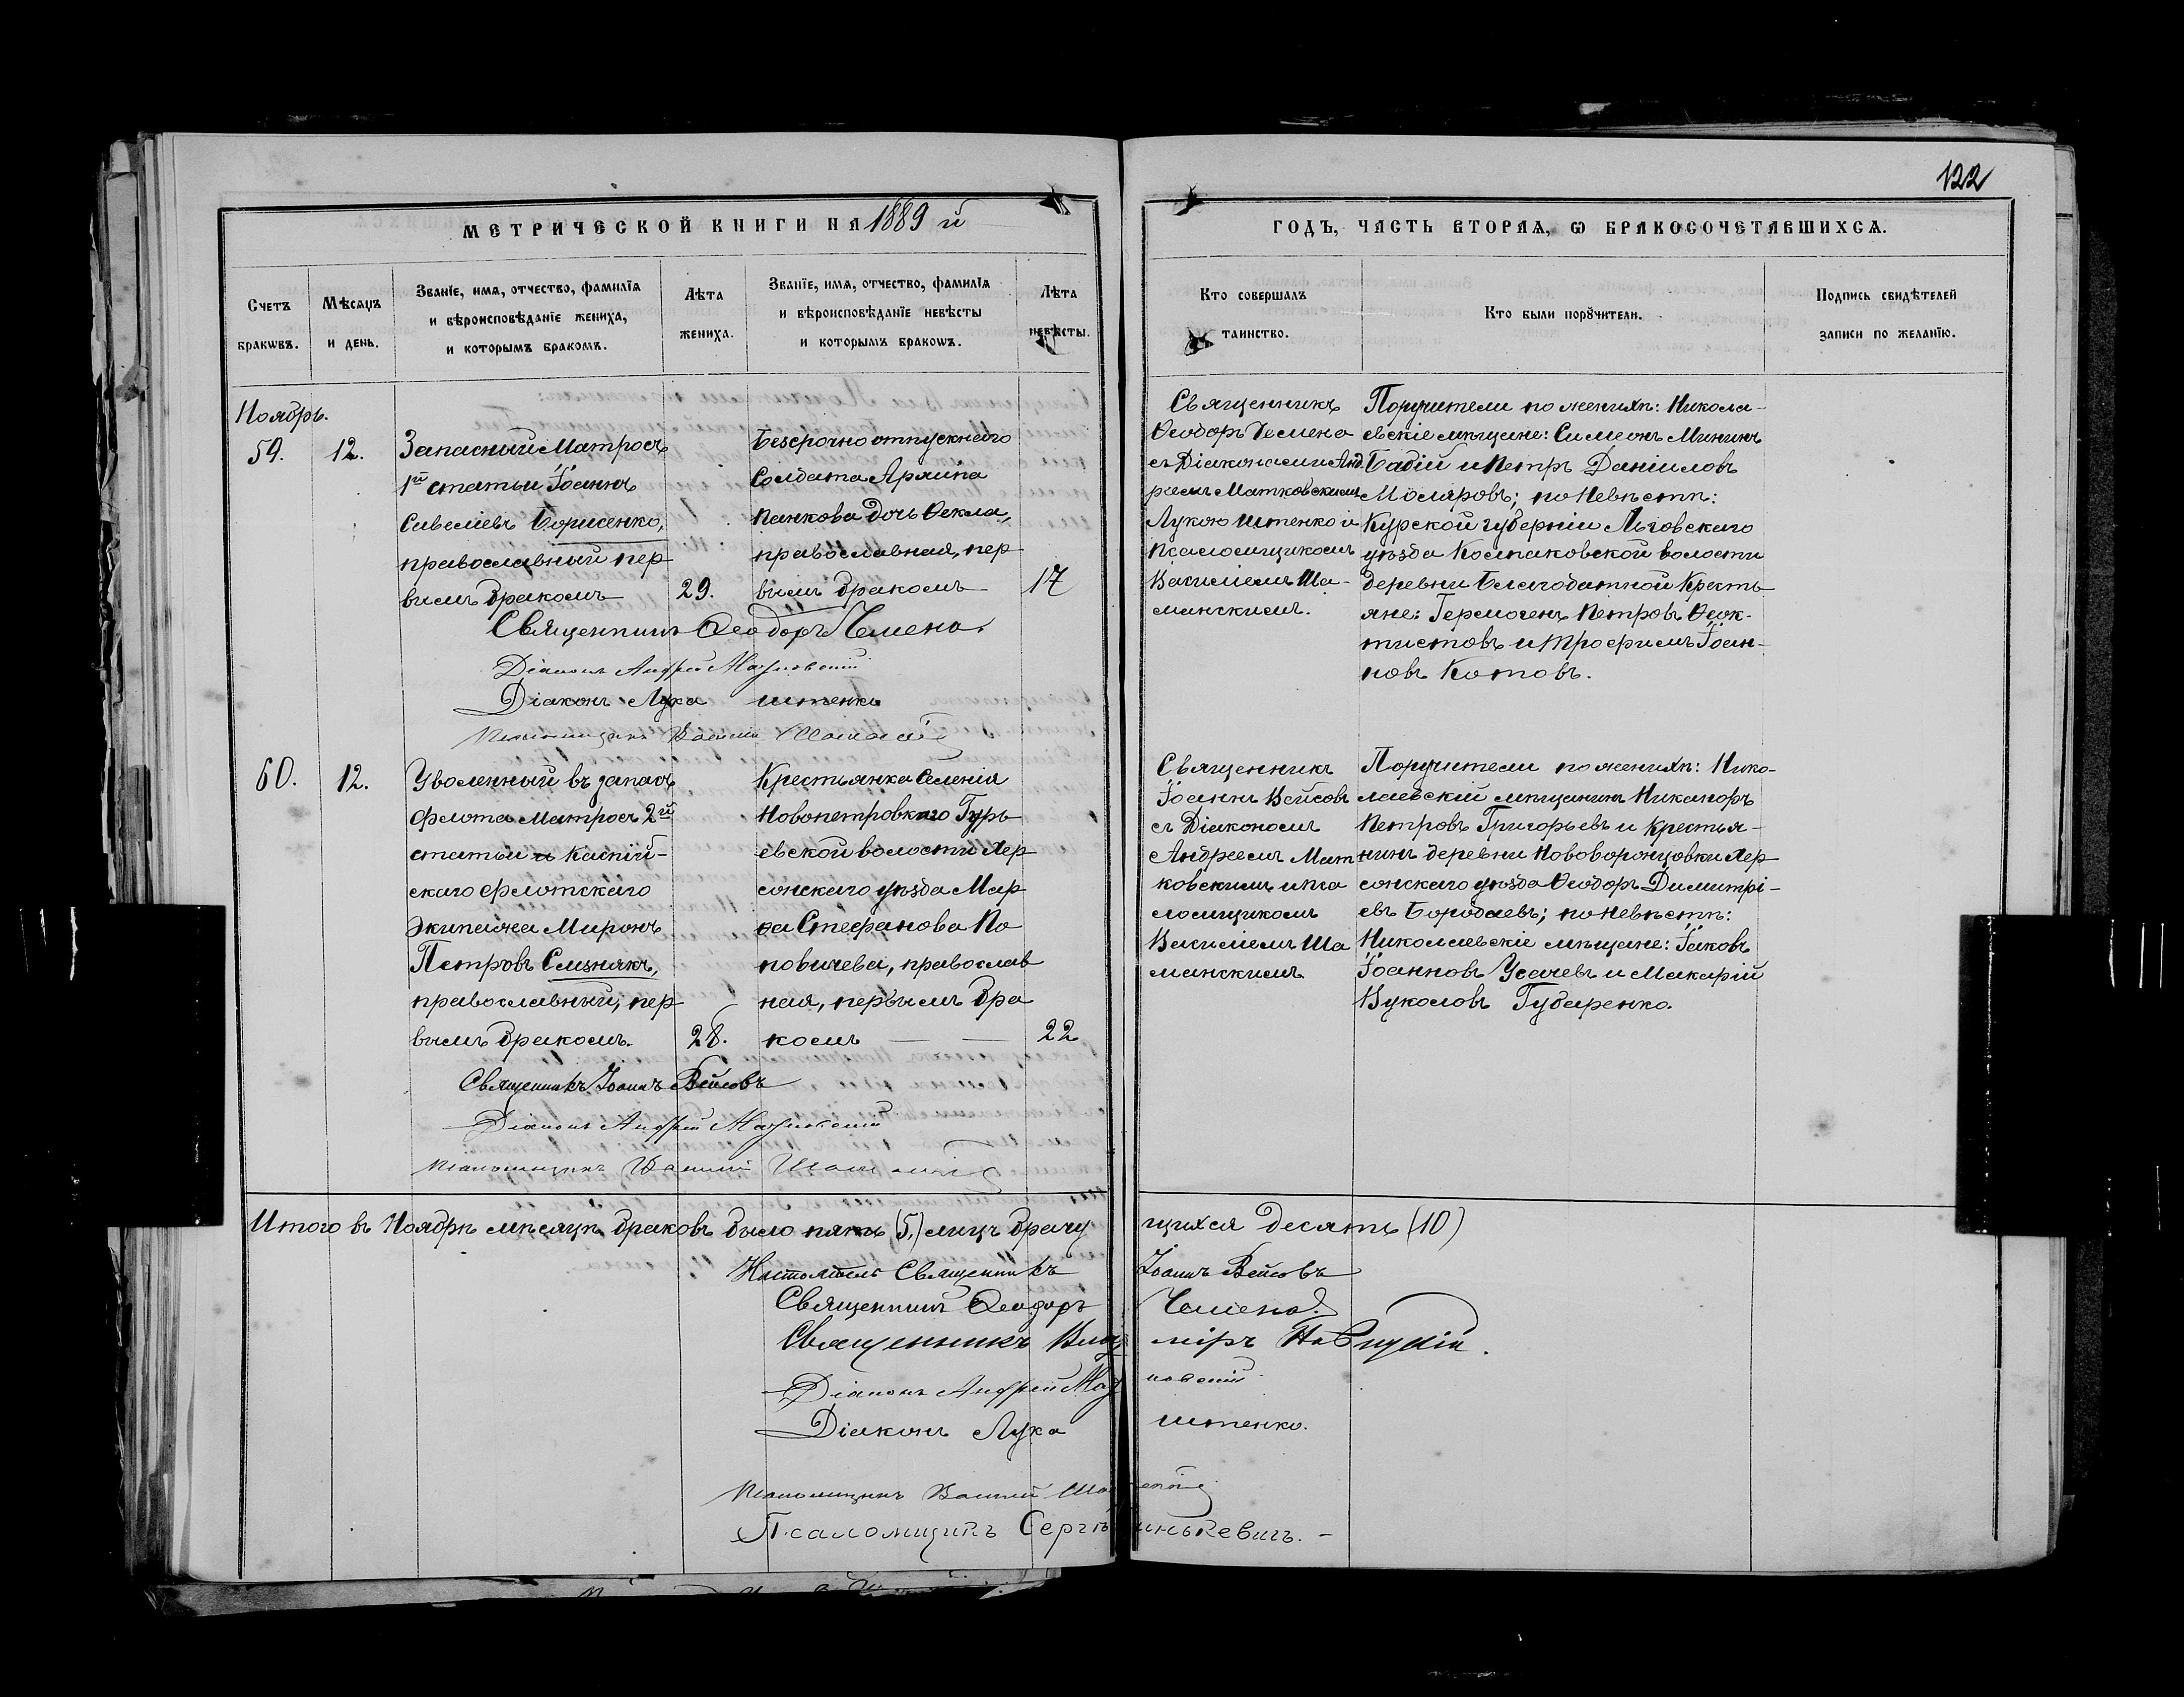 122
МЕТРИЧЕСКОЙ КНИГИ НА 1889 й
ГОДЪ, ЧАСТЬ ВТОРАЯ, Ѡ БРАКОСОЧЕТАВШИХСѦ.
Счетъ браквъ.
Мѣсяцъ и день.
Званїе, имѧ, отчество, фамилїѧ
и вѣроисповѣданїе жениха,
и которымъ бракомъ.
Лѣта жениха.
Званїе, имѧ, отчество, фамилїѧ
и вѣроисповѣданїе невѣсты
и которымъ бракомъ.
Лѣта невѣсты.
Кто совершалъ
таинство.
Кто были порꙋчители.
Подпись свидѣтелей
записи по желанїю.
Ноябрь.
59.
12.
Запасный Матросъ
1й статьи Іоаннъ
Савеліевъ Борисенко,
православный пер
вымъ бракомъ
29.
Безсрочно отпускного
Солдата Архипа
Панкова дочь Ѳекла,
православная, пер
вымъ бракомъ
17
Священникъ
Ѳеодоръ Чемена
съ Діаконами Анд
реемъ Матковскимъ
Лукою Штенко и
Псаломщикомъ
Василіемъ Ша-
манскимъ.
Поручители по женихѣ: Никола-
евскіе мѣщане: Симеонъ Мининъ
Бабій и Петръ Даніиловъ
Моляровъ; по Невѣстѣ:
Курской губерніи Льговскаго
уѣзда Колпаковской волости
деревни Благодатной Кресть
яне: Гермогенъ Петровъ Ѳеок-
тистовъ и Трофимъ Іоан-
новъ Котовъ.
Священникъ Ѳеодоръ Чемена.
Діаконъ Андрей Матковскій
Діаконъ Лука Штенко
Псаломщикъ Василій
60.
12.
Уволенный въ запасъ
флота Матросъ 2й
статьи Каспій-
скаго флотскаго
Экипажа Миронъ
Петровъ Слизнякъ,
православный, пер-
вымъ бракомъ.
28.
Крестьянка Селенія
Новопетровкаго Гурь
евской волости Хер
сонскаго уѣзда Мар
ѳа Стефанова По
повичева, православ
ная, первымъ бра
комъ
22
Священникъ
Іоаннъ Вейсовъ
съ Діакономъ
Андреемъ Мат
ковскимъ и пса
ломщикомъ
Василіемъ Ша
манскимъ
Поручители по женихѣ: Нико-
лаевскій мѣщанинъ Никаноръ
Петровъ Григорьевъ и крестья-
нинъ деревни Нововоронцовки Хер
сонскаго уѣзда Ѳеодоръ Димитрі-
евъ Бородаевъ; по Невѣстѣ:
Николаевскіе мѣщане: Іаковъ
Іоанновъ Усачевъ и Макарій
Вуколовъ Губаренко.
Священникъ Іоаннъ Вейсовъ
Діаконъ Андрей Матковскій
Псаломщикъ Василій
Итого въ Ноябрѣ мѣсяцѣ браковъ было пять (5.) лицъ брачу щихся десять (10)
Настоятель Священникъ Іоаннъ Вейсовъ
Священникъ Ѳеодоръ Чемена.
Священникъ
Діаконъ Андрей Матковскій
Діаконъ Лука Штенко.
Псаломщикъ Василій
Псаломщикъ Сергѣ инькевичъ.